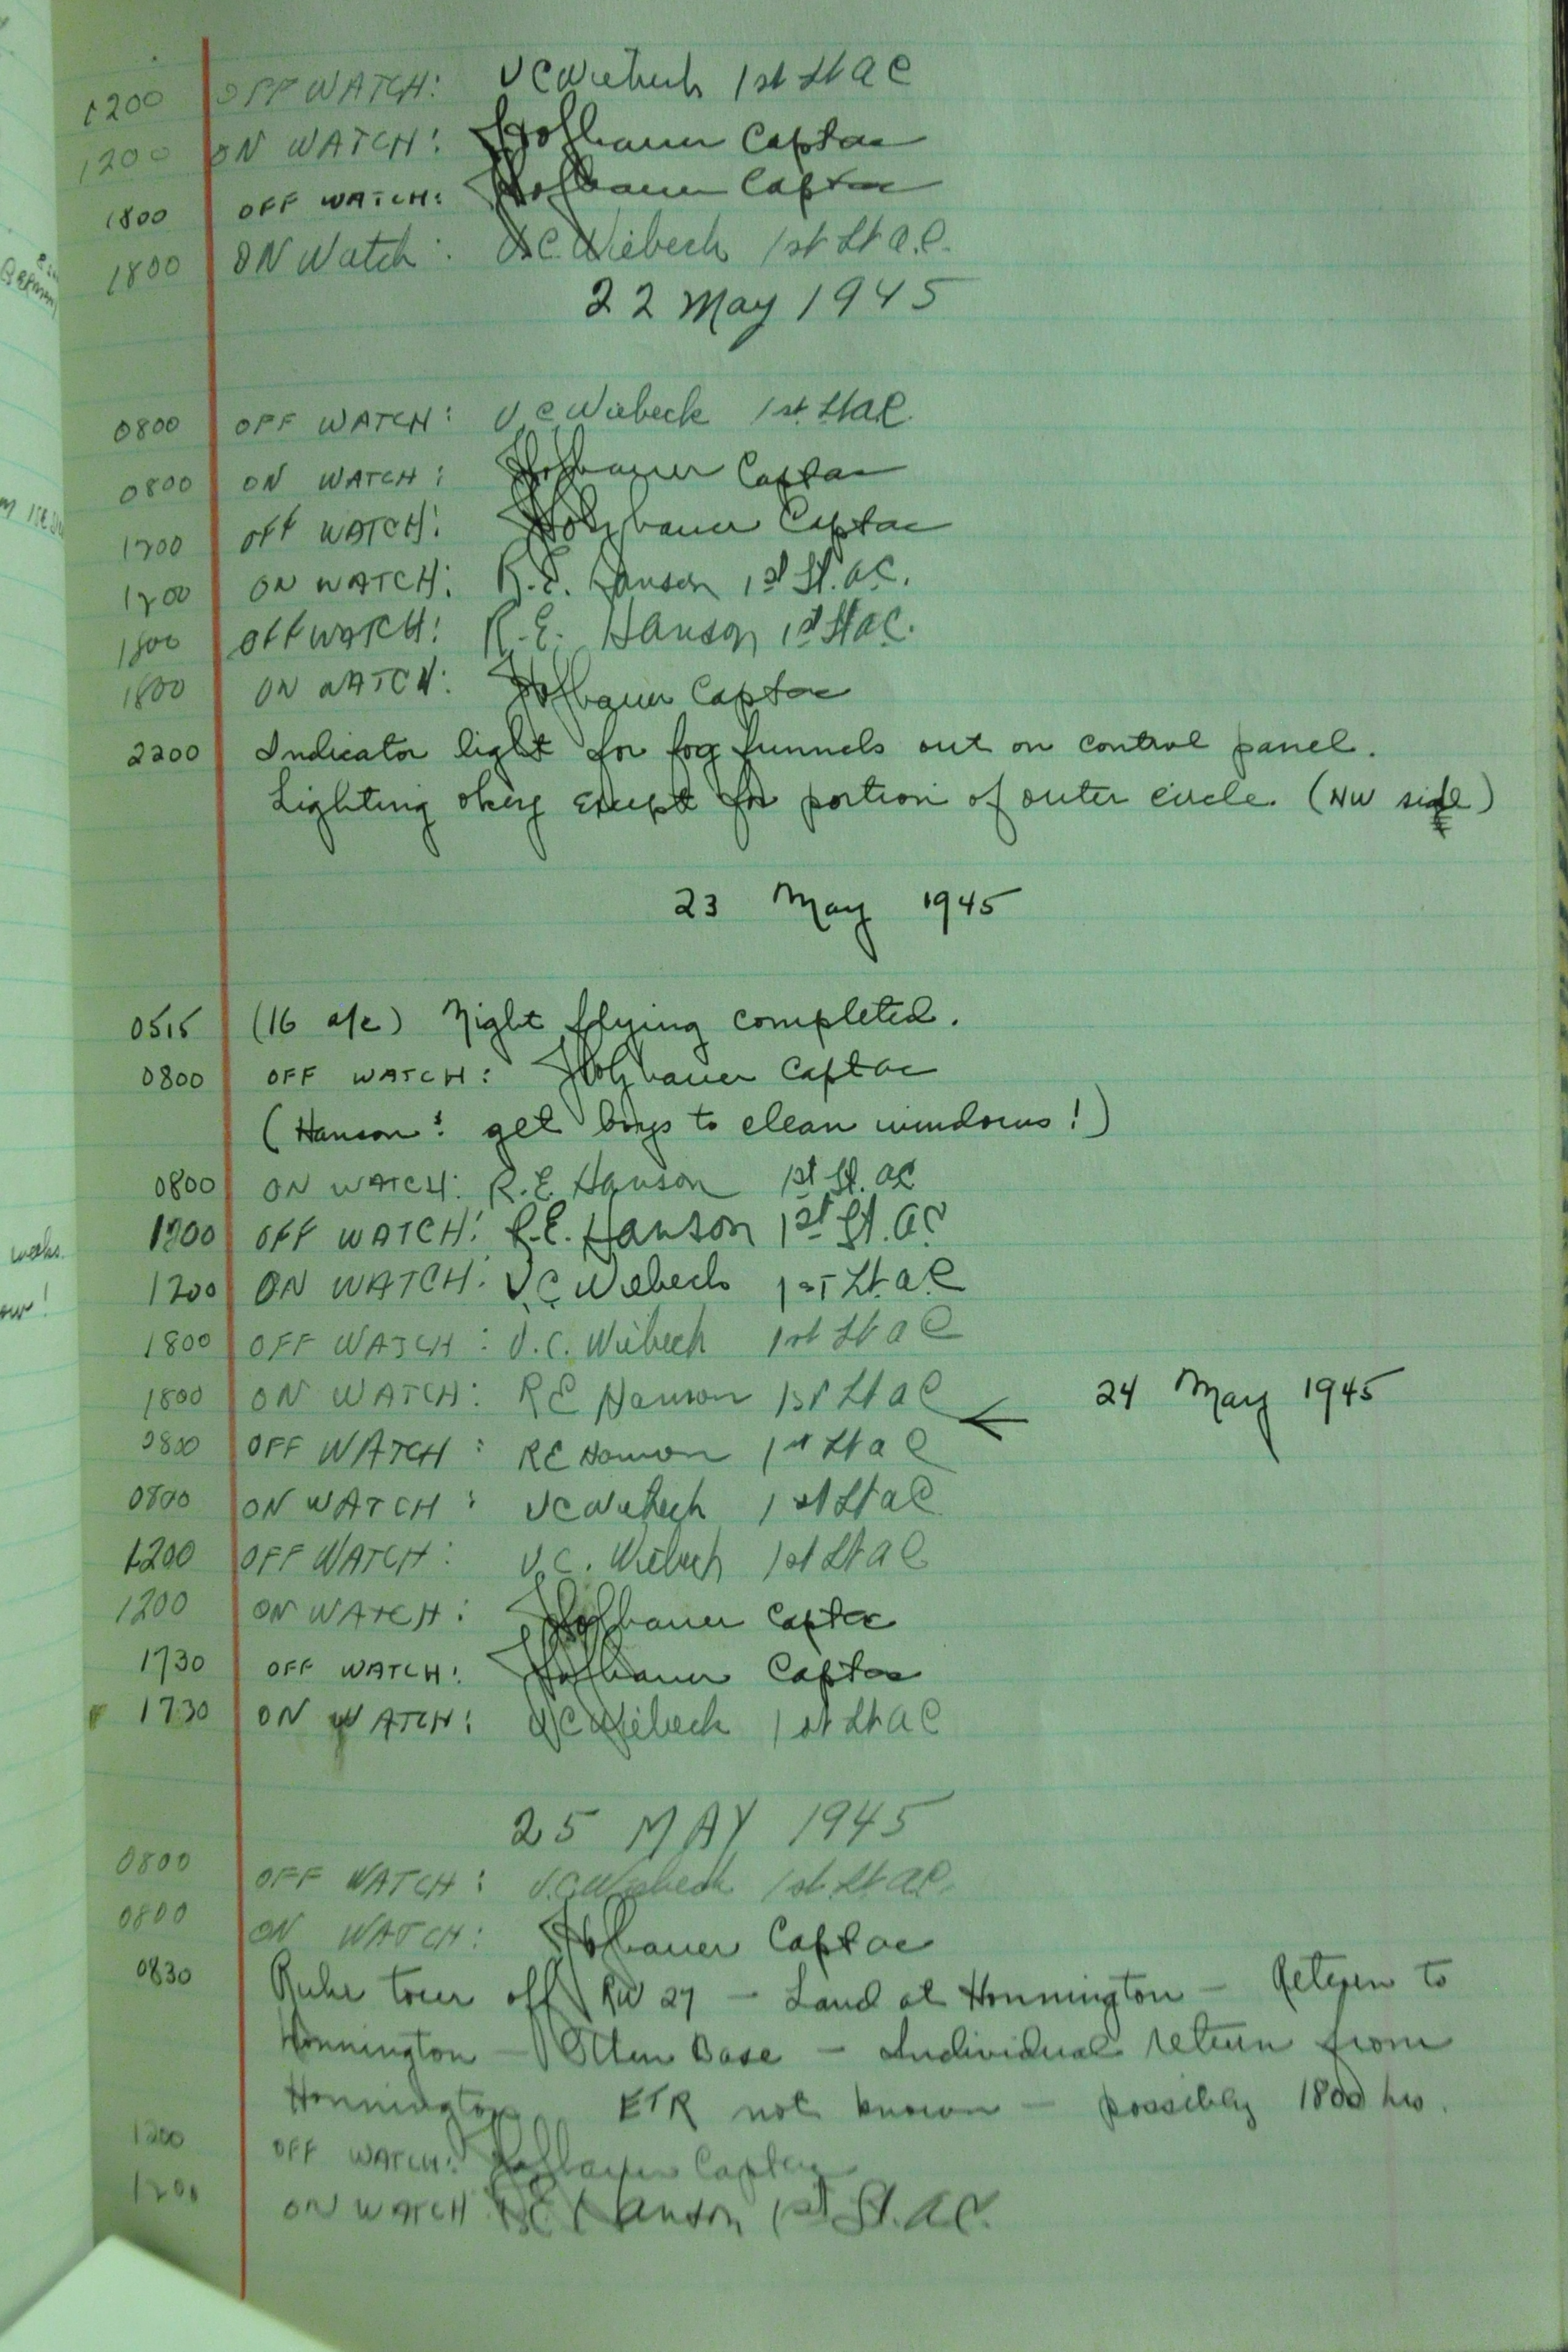 1200 OFF WATCH: V C Wiebeck 1st Lt AC
1200 ON WATCH: Hofbauer Capt ac
1800 OFF WATCH: Hofbauer Capt ac
1800 ON Watch: V.C. Wiebeck 1st Lt a.C.
22 May 1945
0800 OFF WATCH: V.C. Wiebeck 1st Lt aC.
0800 ON WATCH: Hofbauer Capt ac
1200 Off WATCH: Hofbauer Capt ac
1200 ON WATCH: R.E. Hanson 1st Lt. AC.
1800 Off WATCH: R.E. Hanson 1st Lt AC.
1800 ON WATCH: Hofbauer Capt ac
2200 Indicator light for fog funnels out on control panel.
Lighting okey except for portion of outer circle. (NW side)
23 May 1945
0515 (16 a/c) Night flying completed.
0800 OFF WATCH: Hofbauer Capt ac
(Hanson: get boys to clean windows!)
0800 ON WATCH: R.E. Hanson 1st Lt. AC
1200 OFF WATCH: R.E. Hanson 1st Lt. AC
1200 ON WATCH: V.C. Wiebeck 1ST Lt. a.C
1800 OFF WATCH: V.C. Wiebeck 1st Lt a C
1800 ON WATCH: RE Hanson 1st Lt a C
← 24 May 1945
0800 OFF WATCH: RE Hanson 1st Lt a C
0800 ON WATCH: VC Wiebeck 1st Lt a C
1200 OFF WATCH: V.C. Wiebeck 1st Lt a C
1200 ON WATCH: Hofbauer Capt ac
1730 OFF WATCH: Hofbauer Capt ac
1730 ON WATCH: VC Wiebeck 1st Lt a C
25 MAY 1945
0800 OFF WATCH: V.C. Wiebeck 1st Lt aC.
0800 ON WATCH: Hofbauer Capt ac
0830 Ruhr tour off RW 27 – Land at Honnington – Return to
Honnington – Then Base – Individual return from
Honnington ETR not known – possibly 1800 hrs.
1200 OFF WATCH: Hofbauer Capt ac
1200 ON WATCH R.E. Hanson 1st Lt. AC.